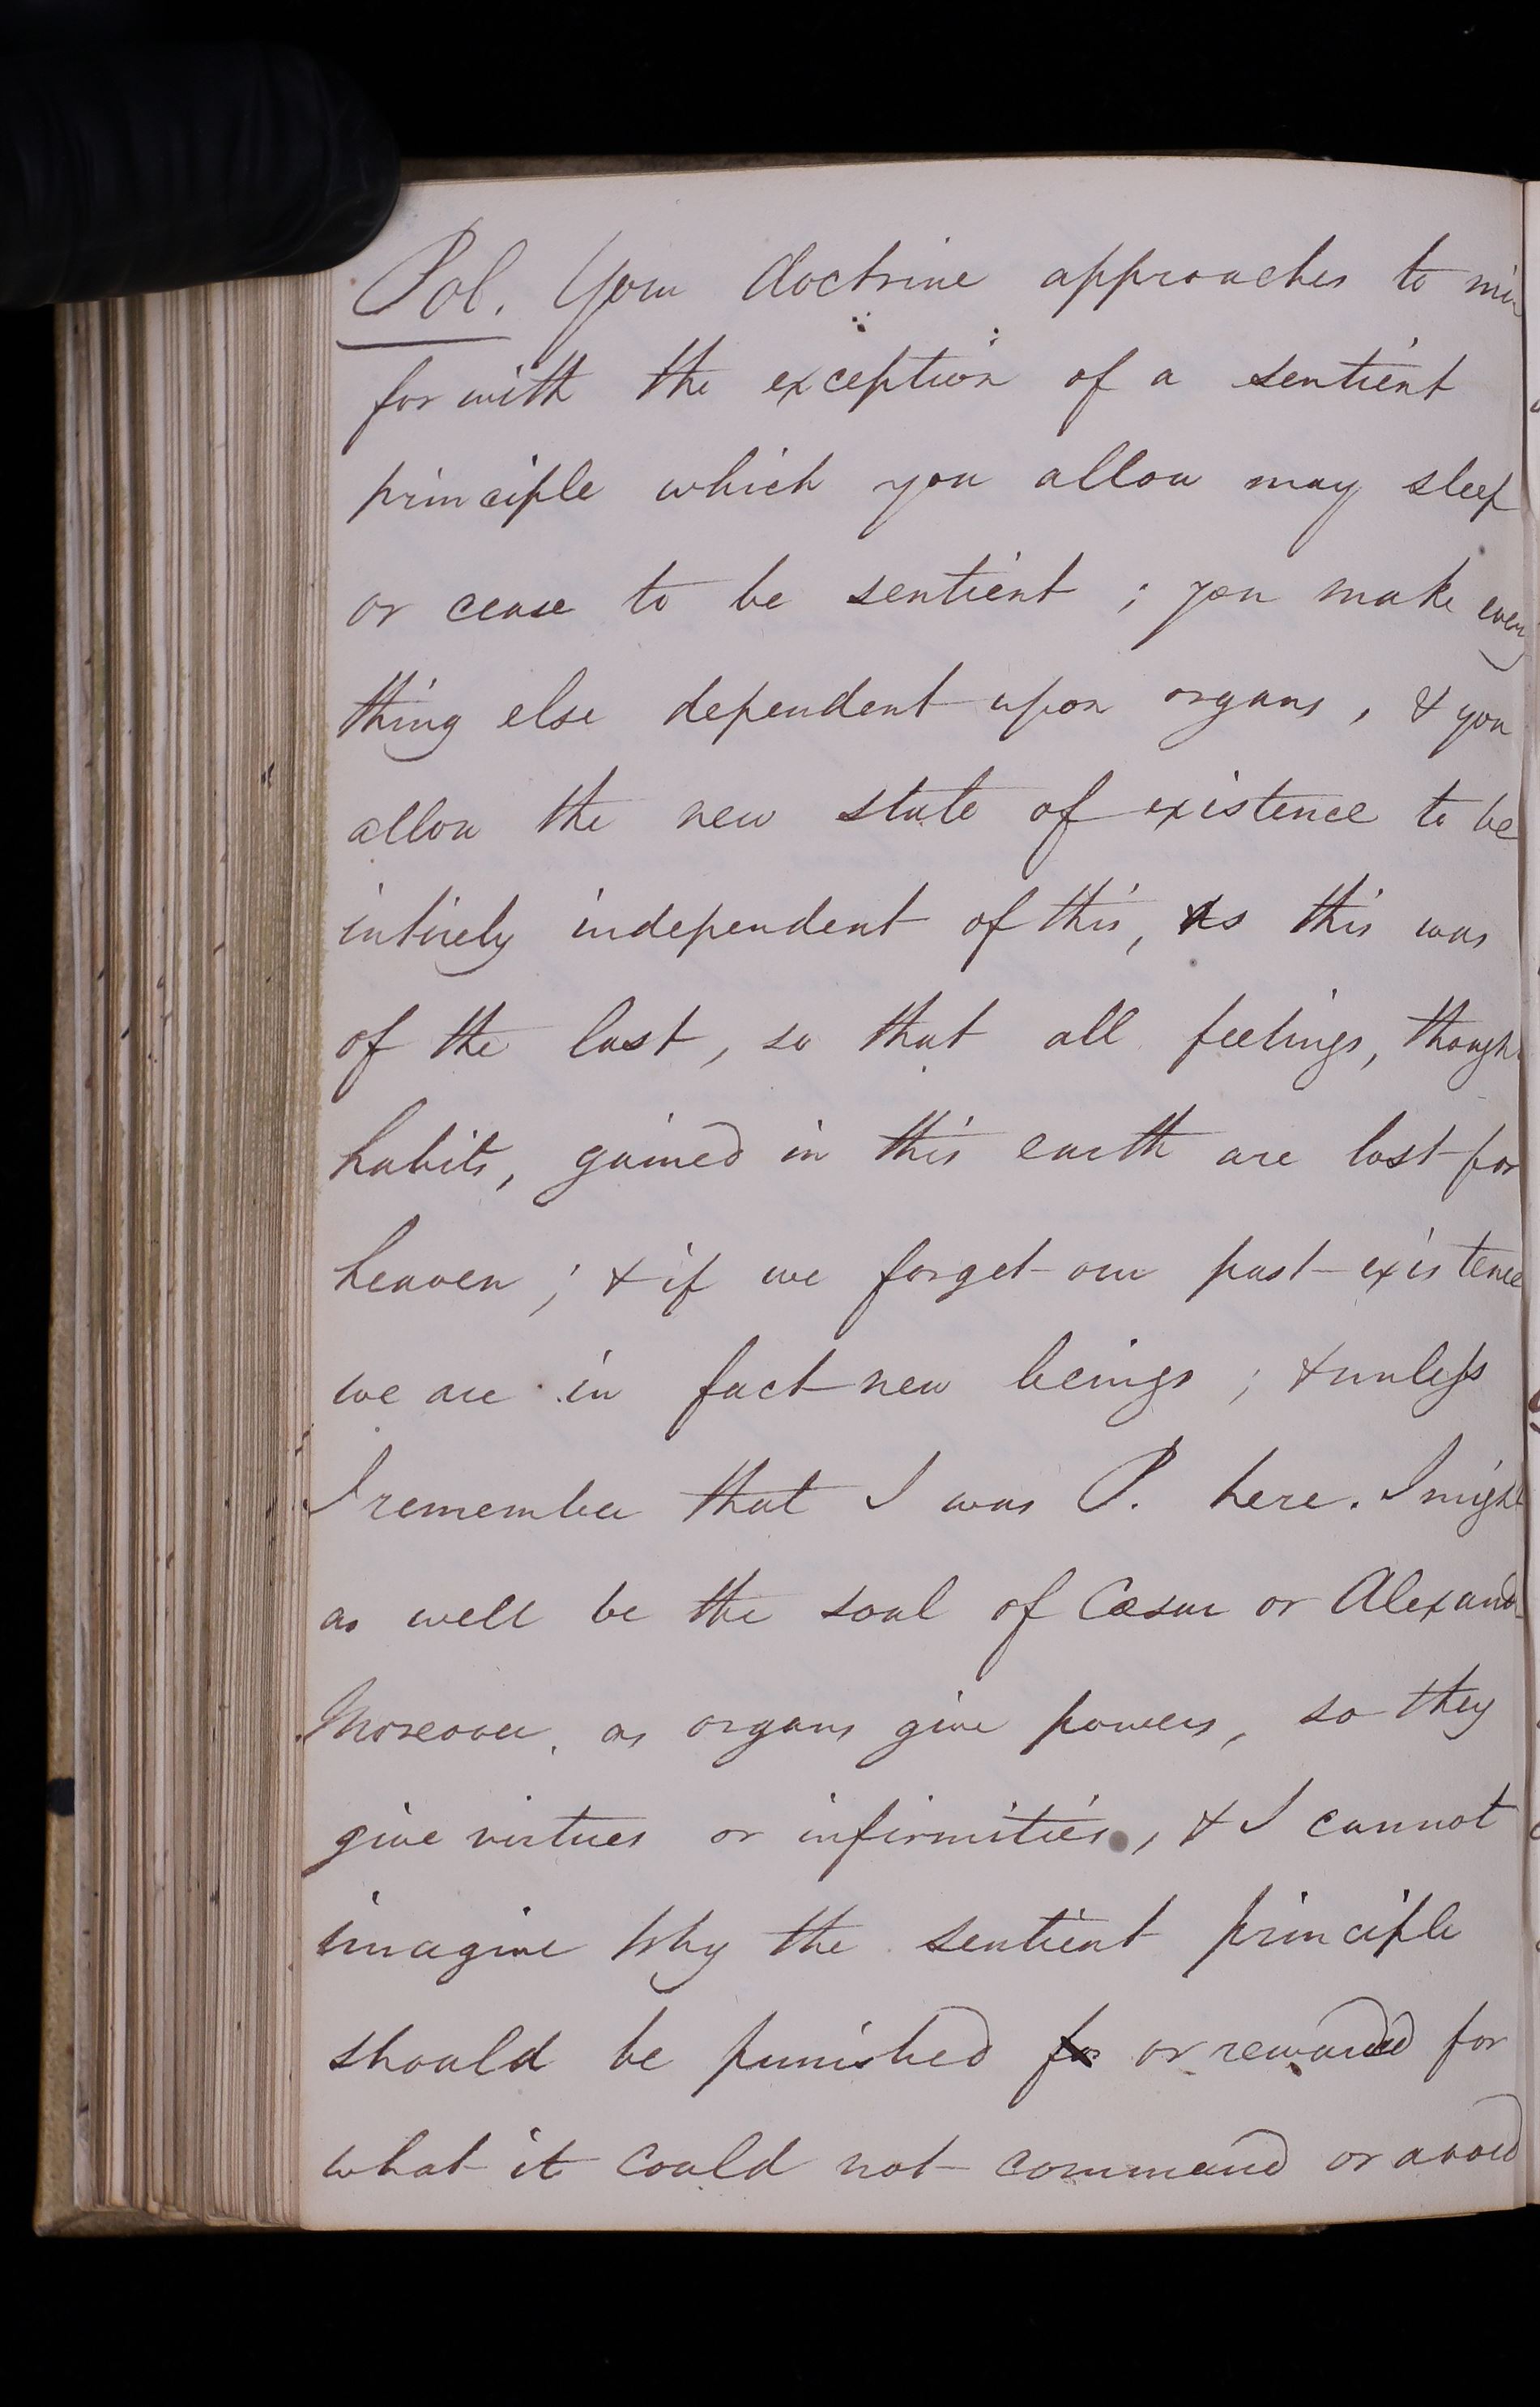 Pol. Your doctrine approaches to min
for with the exception of a sentient
principle which you allow may sleep
or cease to be sentient ; you make every
thing else dependent upon organs, & you
allow the new state of existence to be
intirely independent of this, as this was
of the last, so that all feelings, though
habits, gained in this earth are lost for
heaven ; & if we forget our past existence
we are in fact new beings ; & unless
I remember that I was P. here. I might
as well be the soul of Cæsar or Alexand
Moreover, as organs give powers, so they
give virtues or infirmities, & I cannot
imagine why the sentient principle
should be punished for or rewarded for
what it could not command or avoid